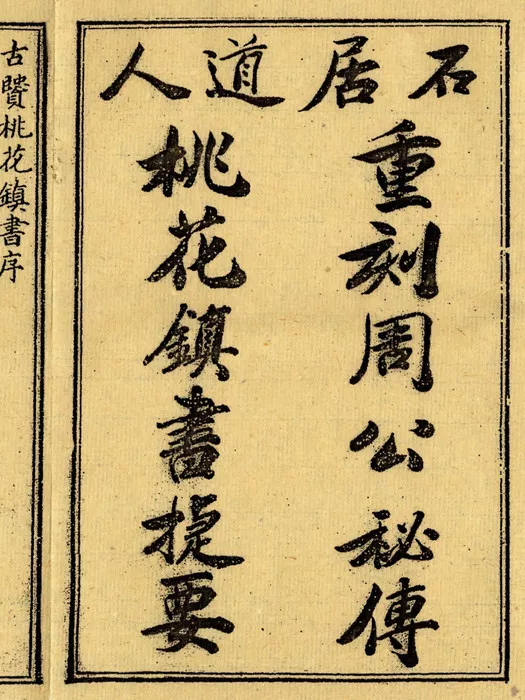 石居道人
重刻周公秘傳
桃花鎮書捷要
古贒桃花鎮書序